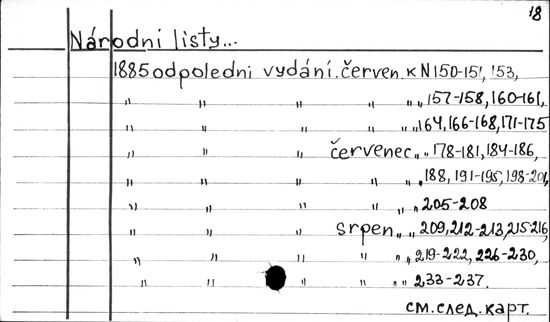 18
Národni listy...
1885 odpoledni vydání. červen. к N 150-151, 153,
" " " " " " 157-158, 160-161,
" " " " " " 164, 166-168, 171-175
" " " červenec " " 178-181, 184-186,
" " " " " " 188, 191-195, 198-201,
" " " " " " 205-208
" " " srpen " " 209, 212-213, 215-216,
" " " " " " 219-222, 226-230,
" " " " " " 233-237.
см. след. карт.